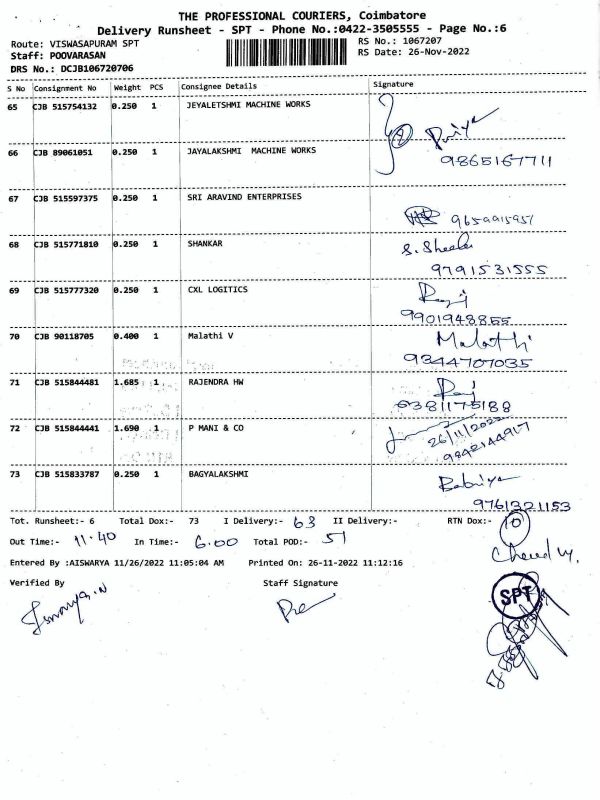 THE PROFESSIONAL COURIERS, Coimbatore
Delivery Runsheet - SPT - Phone No.:0422-3505555 - Page No.:6
Route: VISWASAPURAM SPT RS No.: 1067207
Staff: POOVARASAN RS Date: 26-Nov-2022
DRS No.: DCJB106720706
S No Consignment No Weight PCS Consignee Details Signature
65 CJB 515754132 0.250 1 JEYALETSHMI MACHINE WORKS
Priya
66 CJB 89061051 0.250 1 JAYALAKSHMI MACHINE WORKS
9865167711
67 CJB 515597375 0.250 1 SRI ARAVIND ENTERPRISES
9659915951
68 CJB 515771810 0.250 1 SHANKAR
9791531555
69 CJB 515777320 0.250 1 CXL LOGITICS
9901948855
70 CJB 90118705 0.400 1 Malathi V Malathi
9344707035
71 CJB 515844481 1.685 1 RAJENDRA HW Raj
6381175188
72 CJB 515844441 1.690 1 P MANI & CO 26/11/2022
9842144917
73 CJB 515833787 0.250 1 BAGYALAKSHMI
9761321153
Tot. Runsheet:- 6 Total Dox:- 73 I Delivery:- 63 II Delivery:- RTN Dox:- 10
Out Time:- 11.40 In Time:- 6.00 Total POD:- 51
Entered By :AISWARYA 11/26/2022 11:05:04 AM Printed On: 26-11-2022 11:12:16
Verified By Staff Signature
SPT